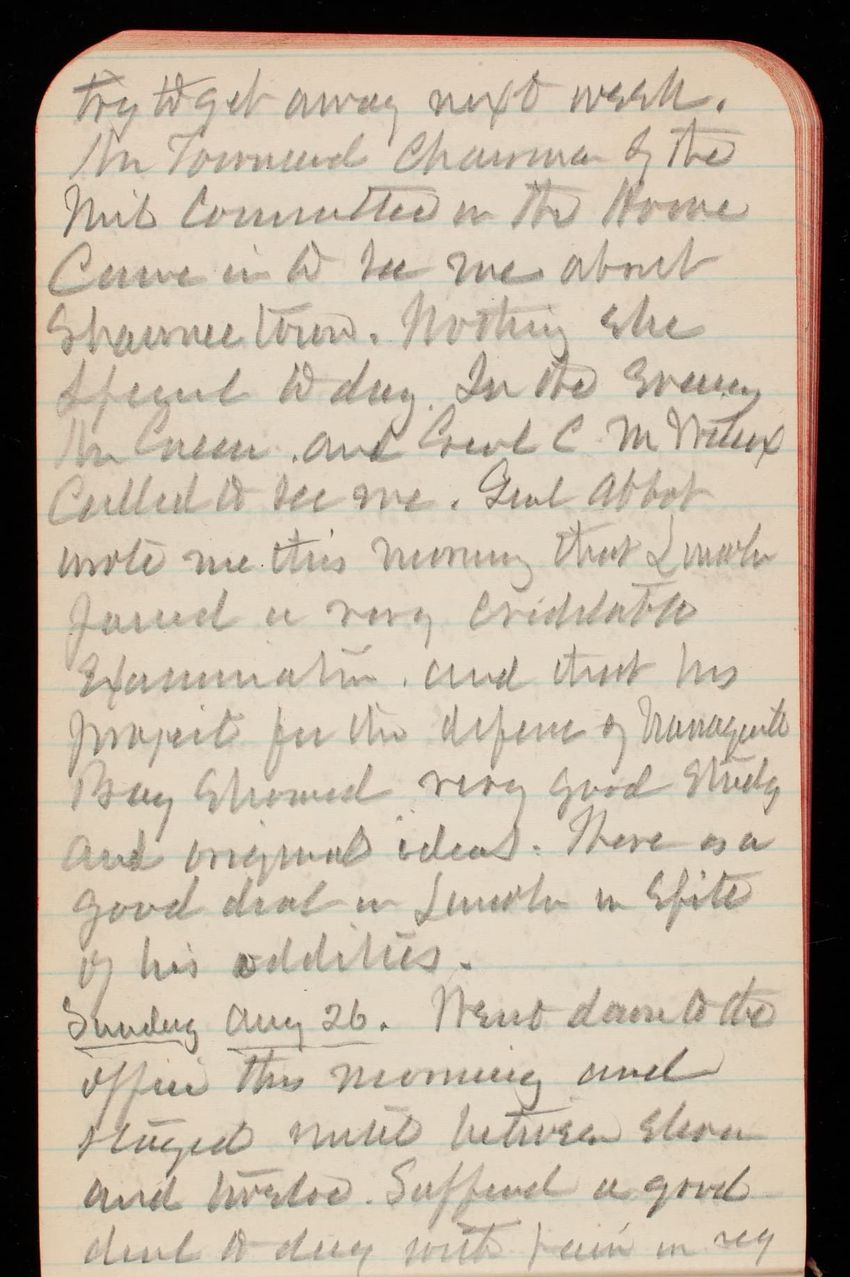 try to get away next week.
Mr Townsend Chairman of the
Mil Committee in the House
Came in to see me about
Shawneetown. Nothing else
special to day. In the Evening
Mr and Genl C M Wilcox
Called to see me. Genl Abbot
wrote me this morning that Lincoln
passed a very creditable
Examination. and that his
project for the defence of Narragansett
Bay Showed very good Study
and original ideas. There is a
good deal in Lincoln in Spite
of his oddities.
Sunday Aug 26. Went down to the
office this morning and
stayed until between eleven
and twelve. Suffered a good
deal to day with pain in my